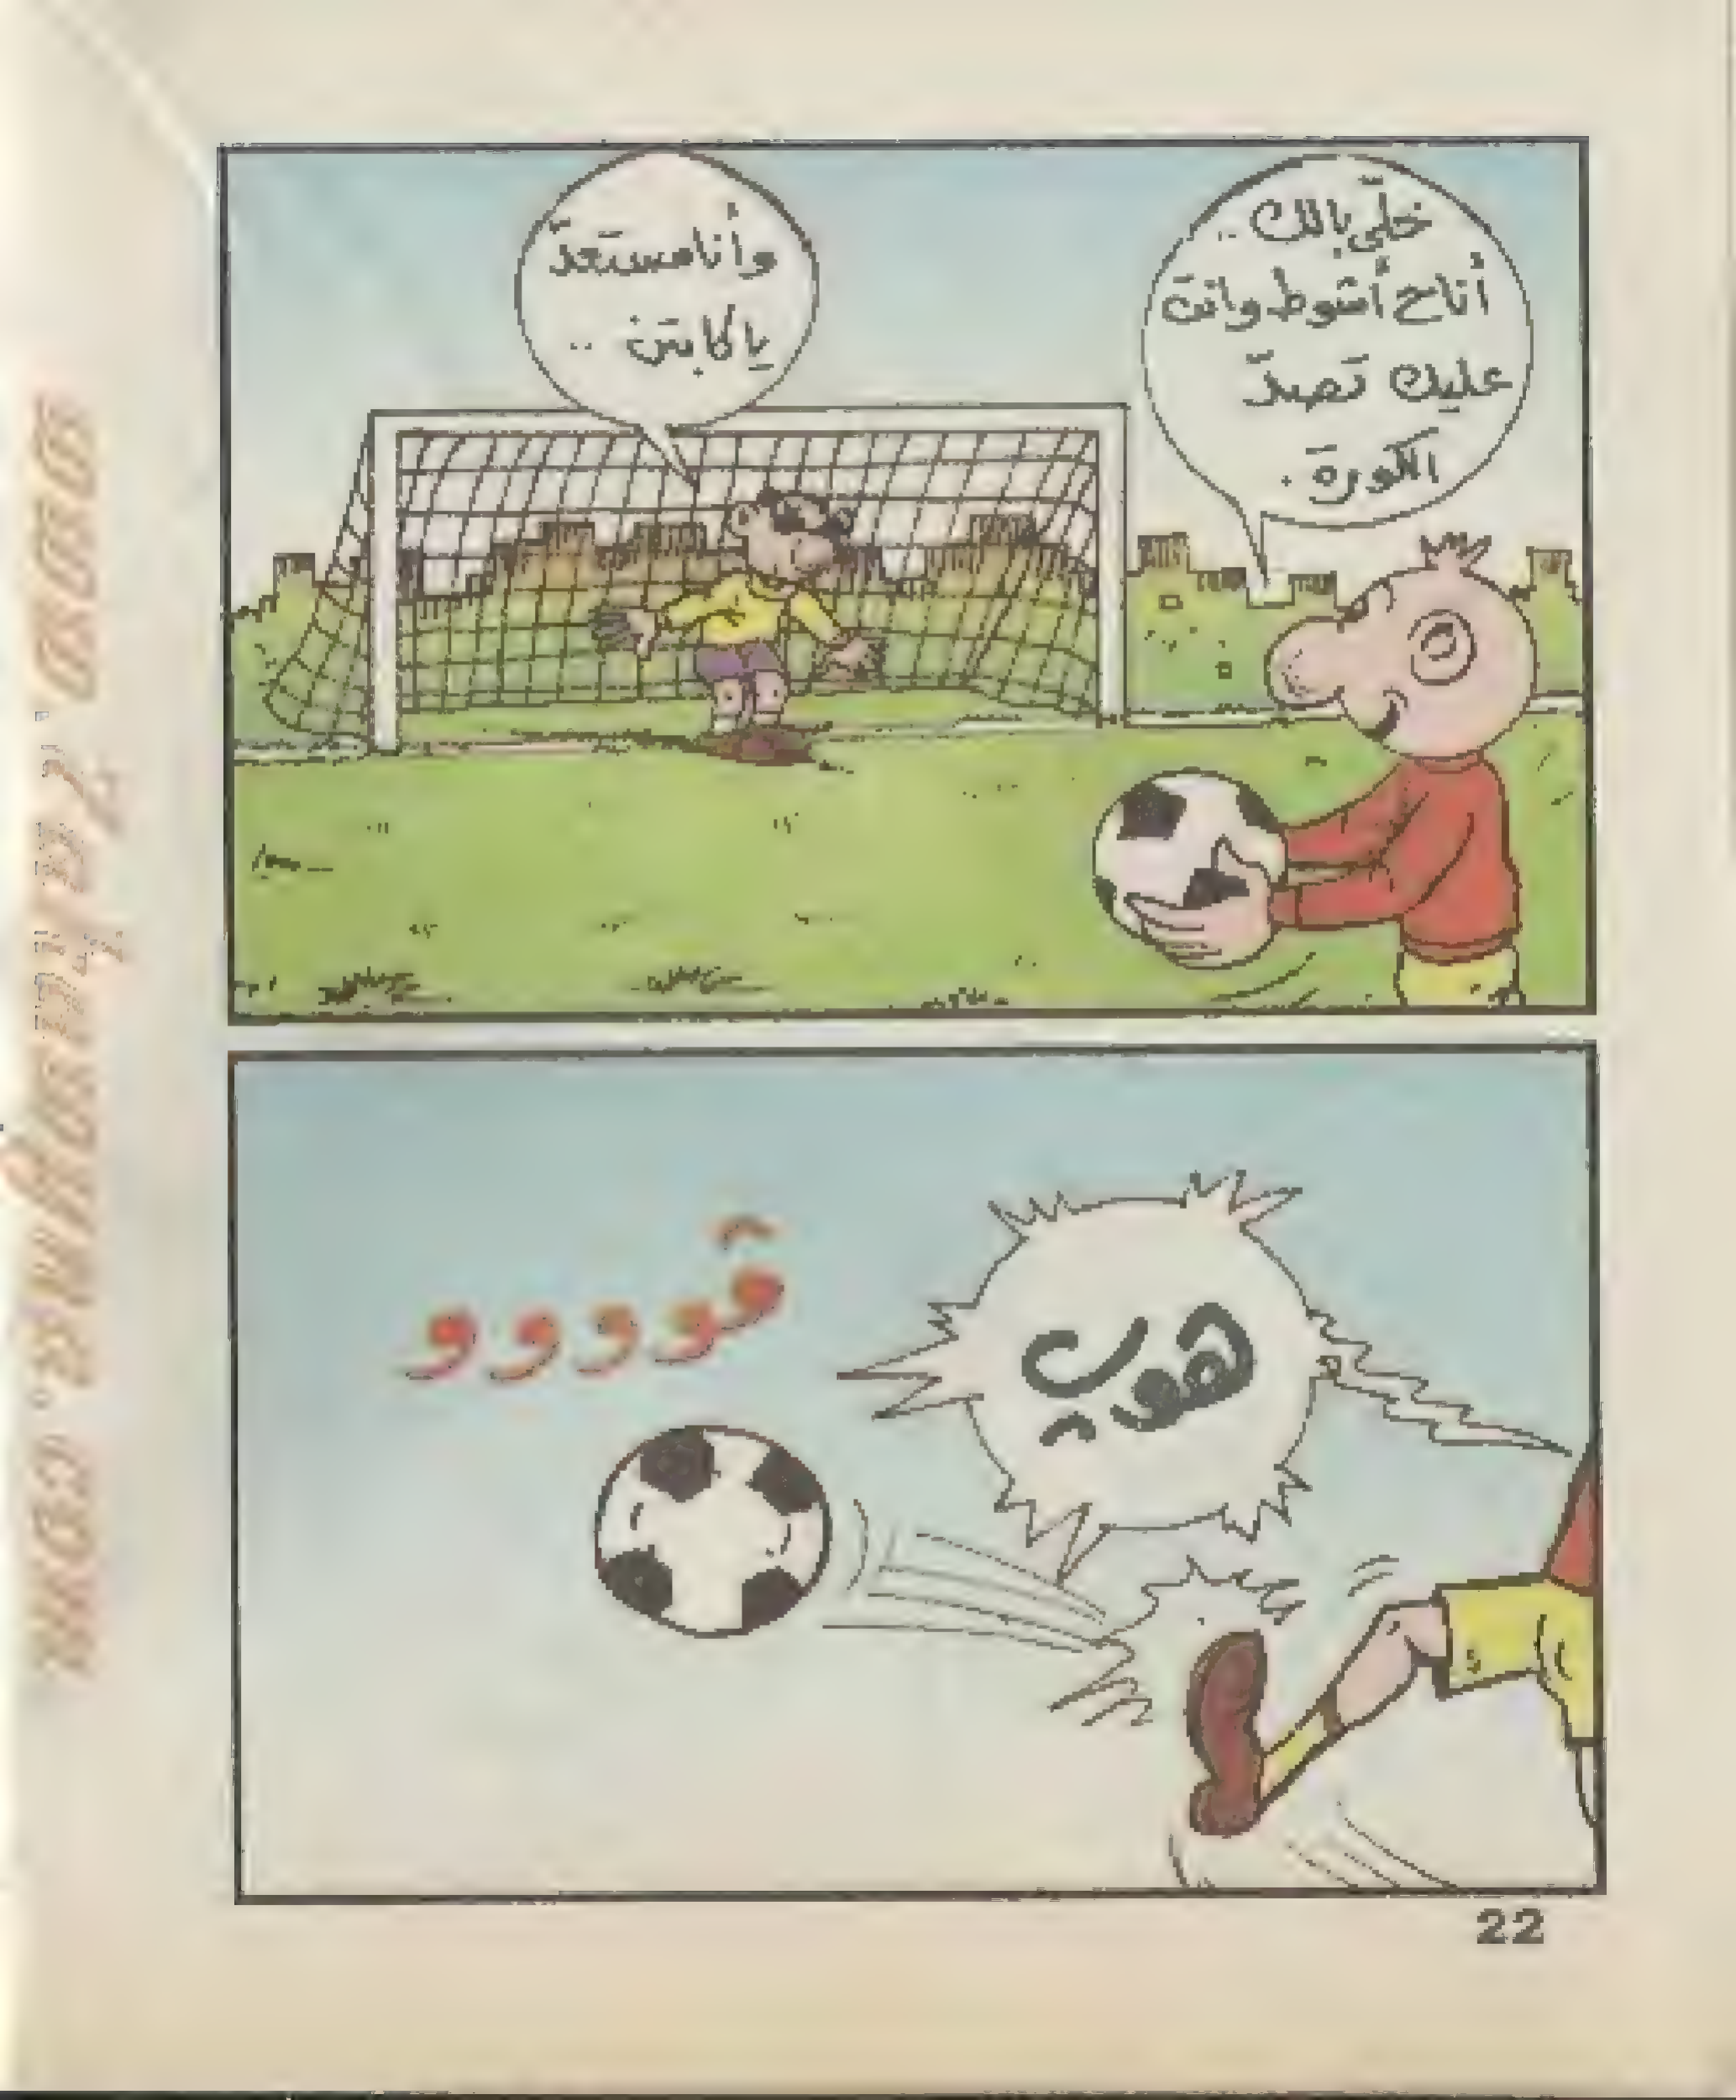 خلّي بالك ..
أنا ح أشوط وانت
عليك تصدّ
الكورة .
وأنا مستعدّ
يا كابتن ..
هوب
قوووو
22